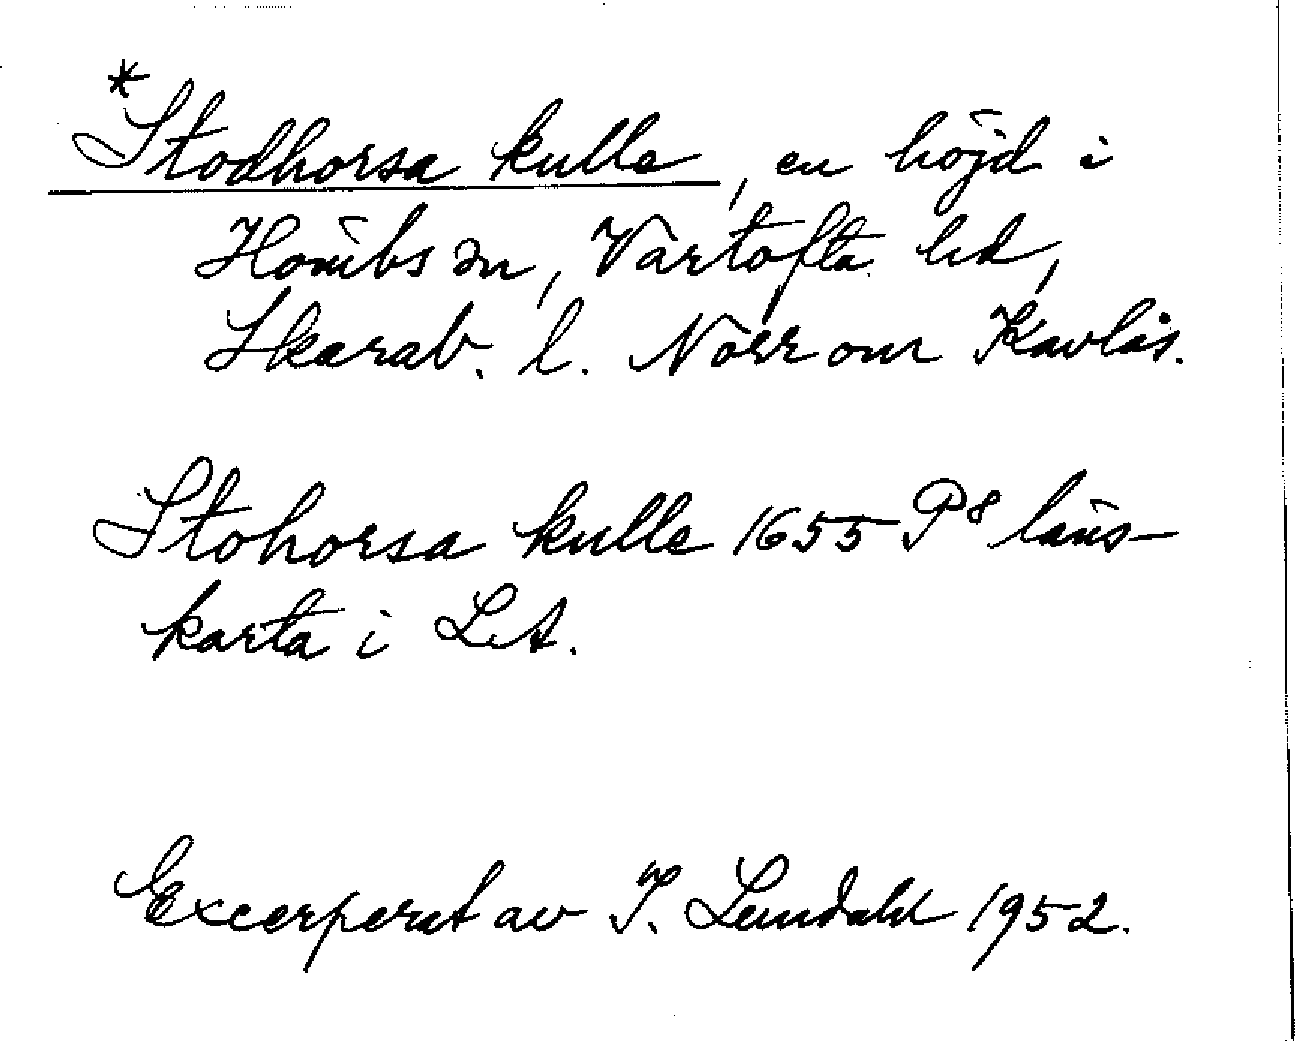 *Stodhorsa kulle, en höjd i
Hömbs sn, Vartofta hd,
Skarab. l. Norr om Kavlås.
Stohorsa kulle 1655 P8 läns-
karta i LA.
Excerperat av I. Lundahl 1952.